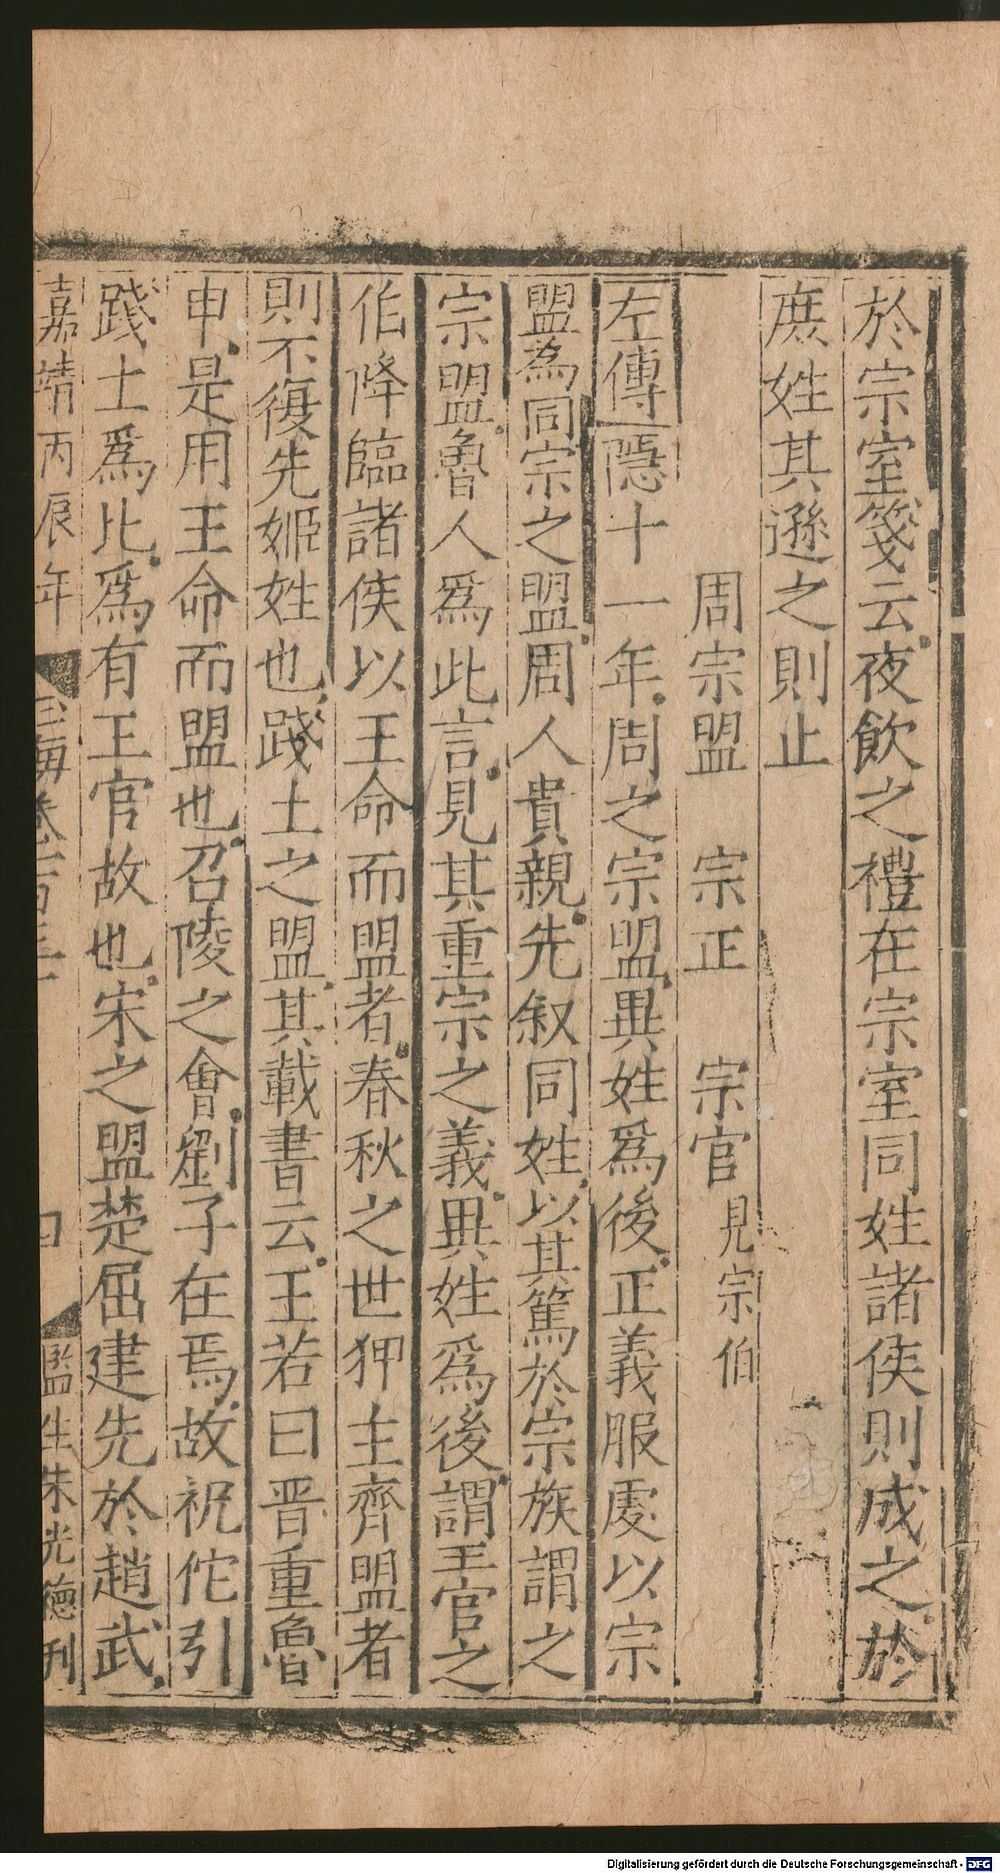 於宗室箋云夜飲之禮在宗室同姓諸侯則成之於
庶姓其遜之則止
周宗盟　宗正　宗官見宗伯
左傳隱十一年周之宗盟異姓爲後正義服虔以宗
盟為同宗之盟周人貴親先叙同姓以其篤於宗族謂之
宗盟魯人爲此言見其重宗之義異姓爲後謂王官之
伯降臨諸侯以王命而盟者春秋之世狎主齊盟者
則不復先姬姓也踐土之盟其載書云王若曰晋重魯
申是用王命而盟也召陵之會劉子在焉故祝佗引
踐土爲比爲有王官故也宋之盟楚屈建先於趙武
嘉靖丙辰年
玉海卷
四
監生朱光德刊
Digitalisierung gefördert durch die Deutsche Forschungsgemeinschaft - DFG